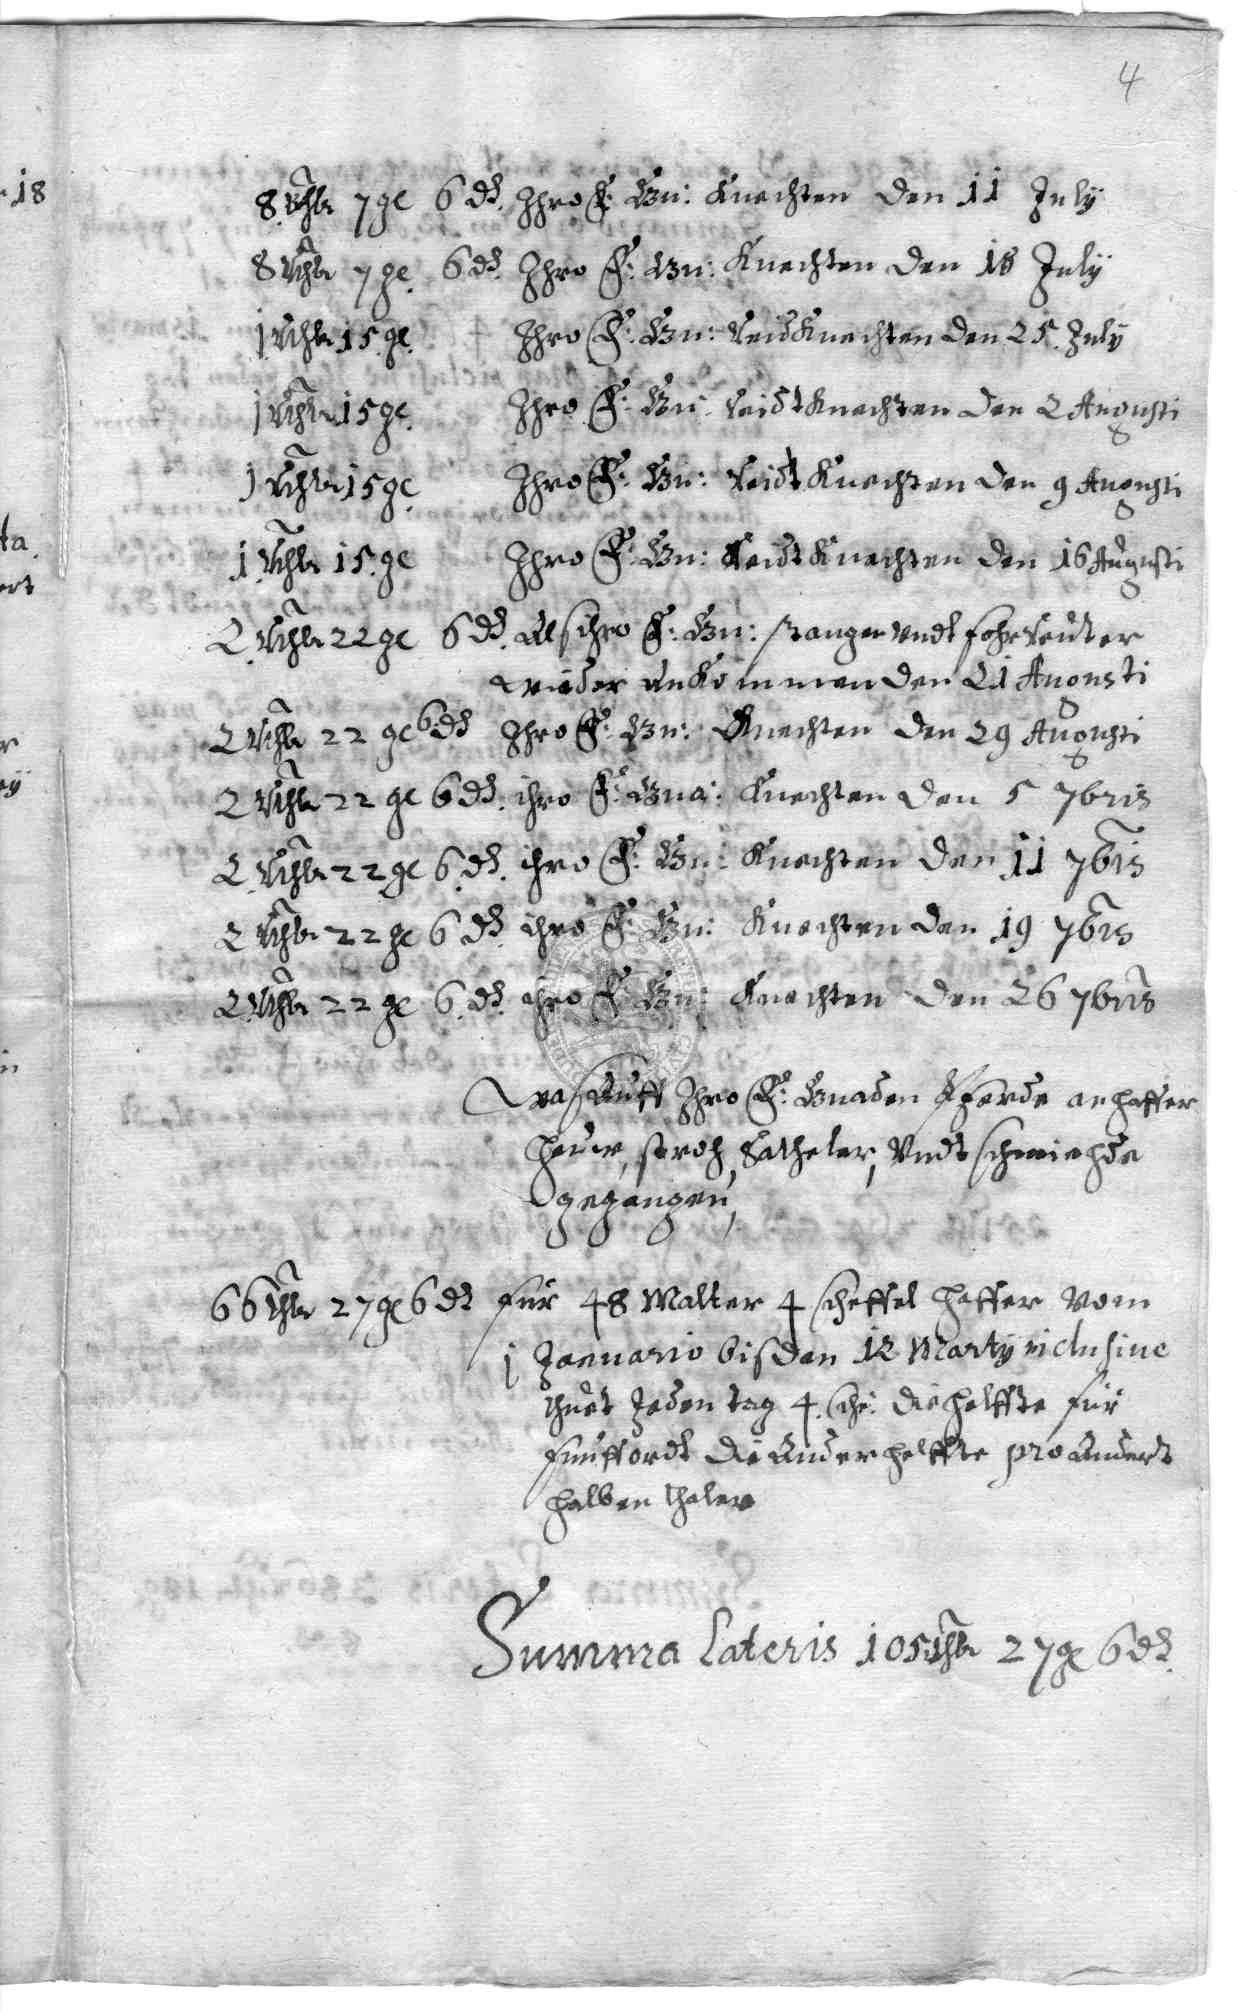 4
18
8 Rthlr 7 gl 6 dȝ. Ihro F: Gn: Knechten den 11 July
8 Rthlr 7 gl. 6 dȝ. Ihro F: Gn: Knechten den 18 July
1 Rthlr 15 gl. Ihro F: Gn: ReidKnechten den 25. July
1 Rthlr 15 gl. Ihro F: Gn: ReidtKnechten den 2 Augusti
1 Rthlr 15 gl. Ihro F: Gn: ReidtKnechten den 9 Augusti
1 Rthlr 15 gl Ihro F: Gn: ReidtKnechten den 16 Augusti
2 Rthlr 22 gl 6 dȝ. Alß ihro F: Gn: Vndt
wieder ankommen den 21 Augusti
2 Rthlr 22 gl 6 dȝ Ihro F: Gn: Knechten den 29 Augusti
2 Rthlr 22 gl 6 dȝ. ihro F: Gna: Knechten den 5 7bris
2 Rthlr 22 gl 6 dȝ. ihro F: Gn: Knechten den 11 7bris
2 Rthlr 22 gl 6 dȝ. ihro F: Gn: Knechten den 19 7bris
2 Rthlr 22 gl 6 dȝ. ihro F: Gn: Knechten den 26 7bris
Waß Auff Ihro F: Gnaden Pferde an haffer
heuw, stroh, Satheler, Vndt schmiehde
gegangen,
66 Rthlr 27 gl 6 dȝ Für 48 Malter 4 scheffel haffer Vom
1 Januario biß den 12 Marty inclusive
thuet Jeden tag 4. sche: die helffte für
die Ander helffte pro Anderdt
halben thaler
Summa Lateris 105 Rthlr 27 gl 6 dȝ.